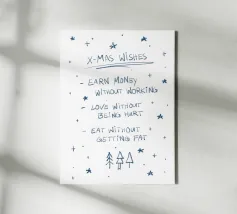 X-MAS WISHES
- EARN MONEY
WITHOUT WORKING
- LOVE WITHOUT
BEING HURT
- EAT WITHOUT
GETTING FAT